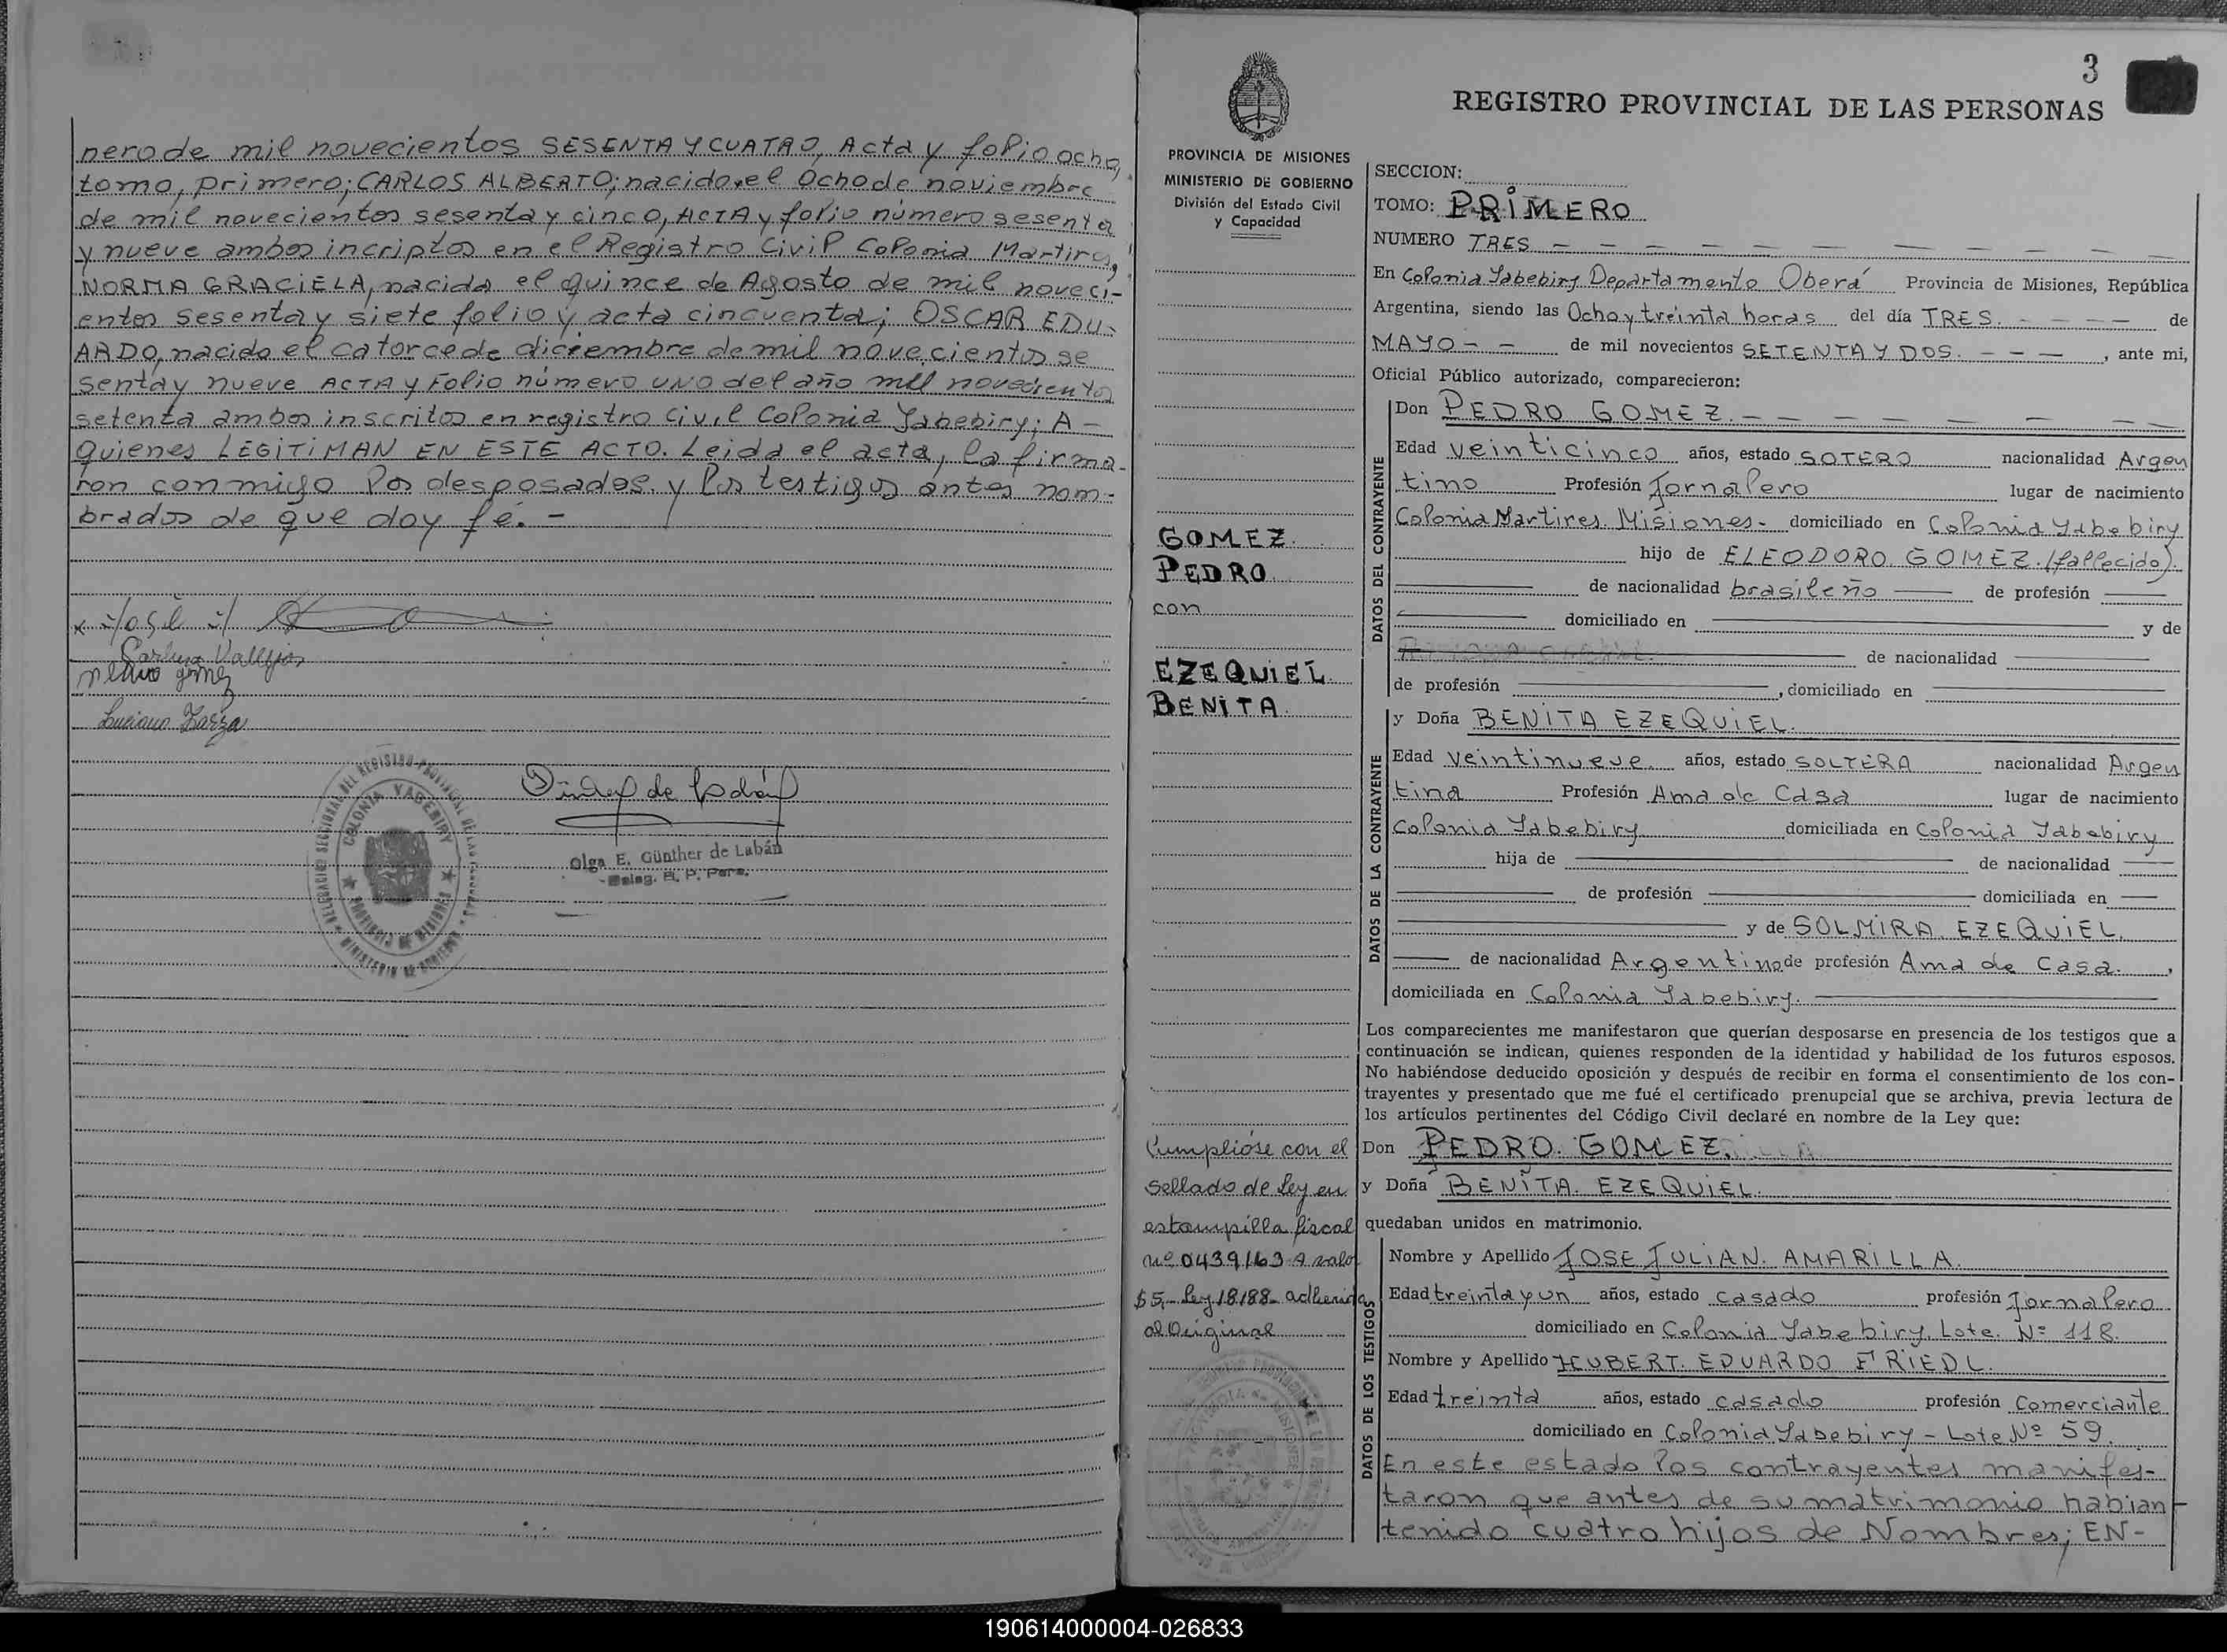 nero de mil novecientos SESENTA Y CUATRO, Acta y folio ocho,
tomo, primero; CARLOS ALBERTO; nacido el Ocho de noviembre
de mil novecientos sesenta y cinco, ACTA y folio número sesenta
y nueve ambos incriptos en el Registro Civil Colonia Martires,
NORMA GRACIELA, nacida el quince de Agosto de mil noveci-
entos sesenta y siete folio y acta cincuenta; OSCAR EDU-
ARDO, nacido el catorce de diciembre de mil novecientos se
senta y nueve ACTA y Folio número uno del año mil novecientos
setenta ambos inscritos en registro civil Colonia Yabebiry; A-
quienes LEGITIMAN EN ESTE ACTO. Leida el acta, la firma-
ron conmigo los desposados y los testigos antes nom-
brados de que doy fé. -
Luciano
DELEGACION SECCIONAL DEL REGISTRO PROVINCIAL DE LAS PERSONAS
COLONIA YABEBIRY
PROVINCIA DE MISIONES
MINISTERIO DE GOBIERNO
Olga E. Günther de Labán
Deleg. R. P. Pers.
3
REGISTRO PROVINCIAL DE LAS PERSONAS
PROVINCIA DE MISIONES
MINISTERIO DE GOBIERNO
División del Estado Civil
y Capacidad
SECCION:
TOMO: PRIMERO
NUMERO TRES
En Colonia Yabebiry Departamento Oberá Provincia de Misiones, República
Argentina, siendo las Ocho y treinta horas del día TRES. de
MAYO de mil novecientos SETENTA Y DOS. , ante mi,
Oficial Público autorizado, comparecieron:
GOMEZ
PEDRO
con
EZEQUIEL
BENITA
DATOS DEL CONTRAYENTE
Don PEDRO GOMEZ.
Edad veinticinco años, estado SOTERO nacionalidad Argen
tino Profesión Jornalero lugar de nacimiento
Colonia Martires Misiones- domiciliado en Colonia Yabebiry
hijo de ELEODORO GOMEZ. (fallecido).
de nacionalidad brasileño de profesión
domiciliado en y de
de nacionalidad
de profesión , domiciliado en
DATOS DE LA CONTRAYENTE
y Doña BENITA EZEQUIEL.
Edad veintinueve años, estado SOLTERA nacionalidad Argen
tina Profesión Ama de Casa lugar de nacimiento
Colonia Yabebiry domiciliada en Colonia Yabebiry
hija de de nacionalidad
de profesión domiciliada en
y de SOLMIRA EZEQUIEL.
de nacionalidad Argentina de profesión Ama de Casa. ,
domiciliada en Colonia Yabebiry.
Los comparecientes me manifestaron que querían desposarse en presencia de los testigos que a
continuación se indican, quienes responden de la identidad y habilidad de los futuros esposos.
No habiéndose deducido oposición y después de recibir en forma el consentimiento de los con-
trayentes y presentado que me fué el certificado prenupcial que se archiva, previa lectura de
los artículos pertinentes del Código Civil declaré en nombre de la Ley que:
Don PEDRO GOMEZ.
y Doña BENITA EZEQUIEL.
quedaban unidos en matrimonio.
Cumplióse con el
sellado de ley en
estampilla fiscal
nº 0439163 A valor
$5,- Ley 18188- adherida
al Original
DATOS DE LOS TESTIGOS
Nombre y Apellido JOSE JULIAN AMARILLA
Edad treinta y un años, estado casado profesión Jornalero
domiciliado en Colonia Yabebiry. Lote. Nº 118.
Nombre y Apellido HUBERT EDUARDO FRIEDL.
Edad treinta años, estado casado profesión Comerciante
domiciliado en Colonia Yabebiry - Lote Nº 59.
En este estado los contrayentes manifes-
taron que antes de su matrimonio habian
tenido cuatro hijos de Nombres; EN-
190614000004-026833